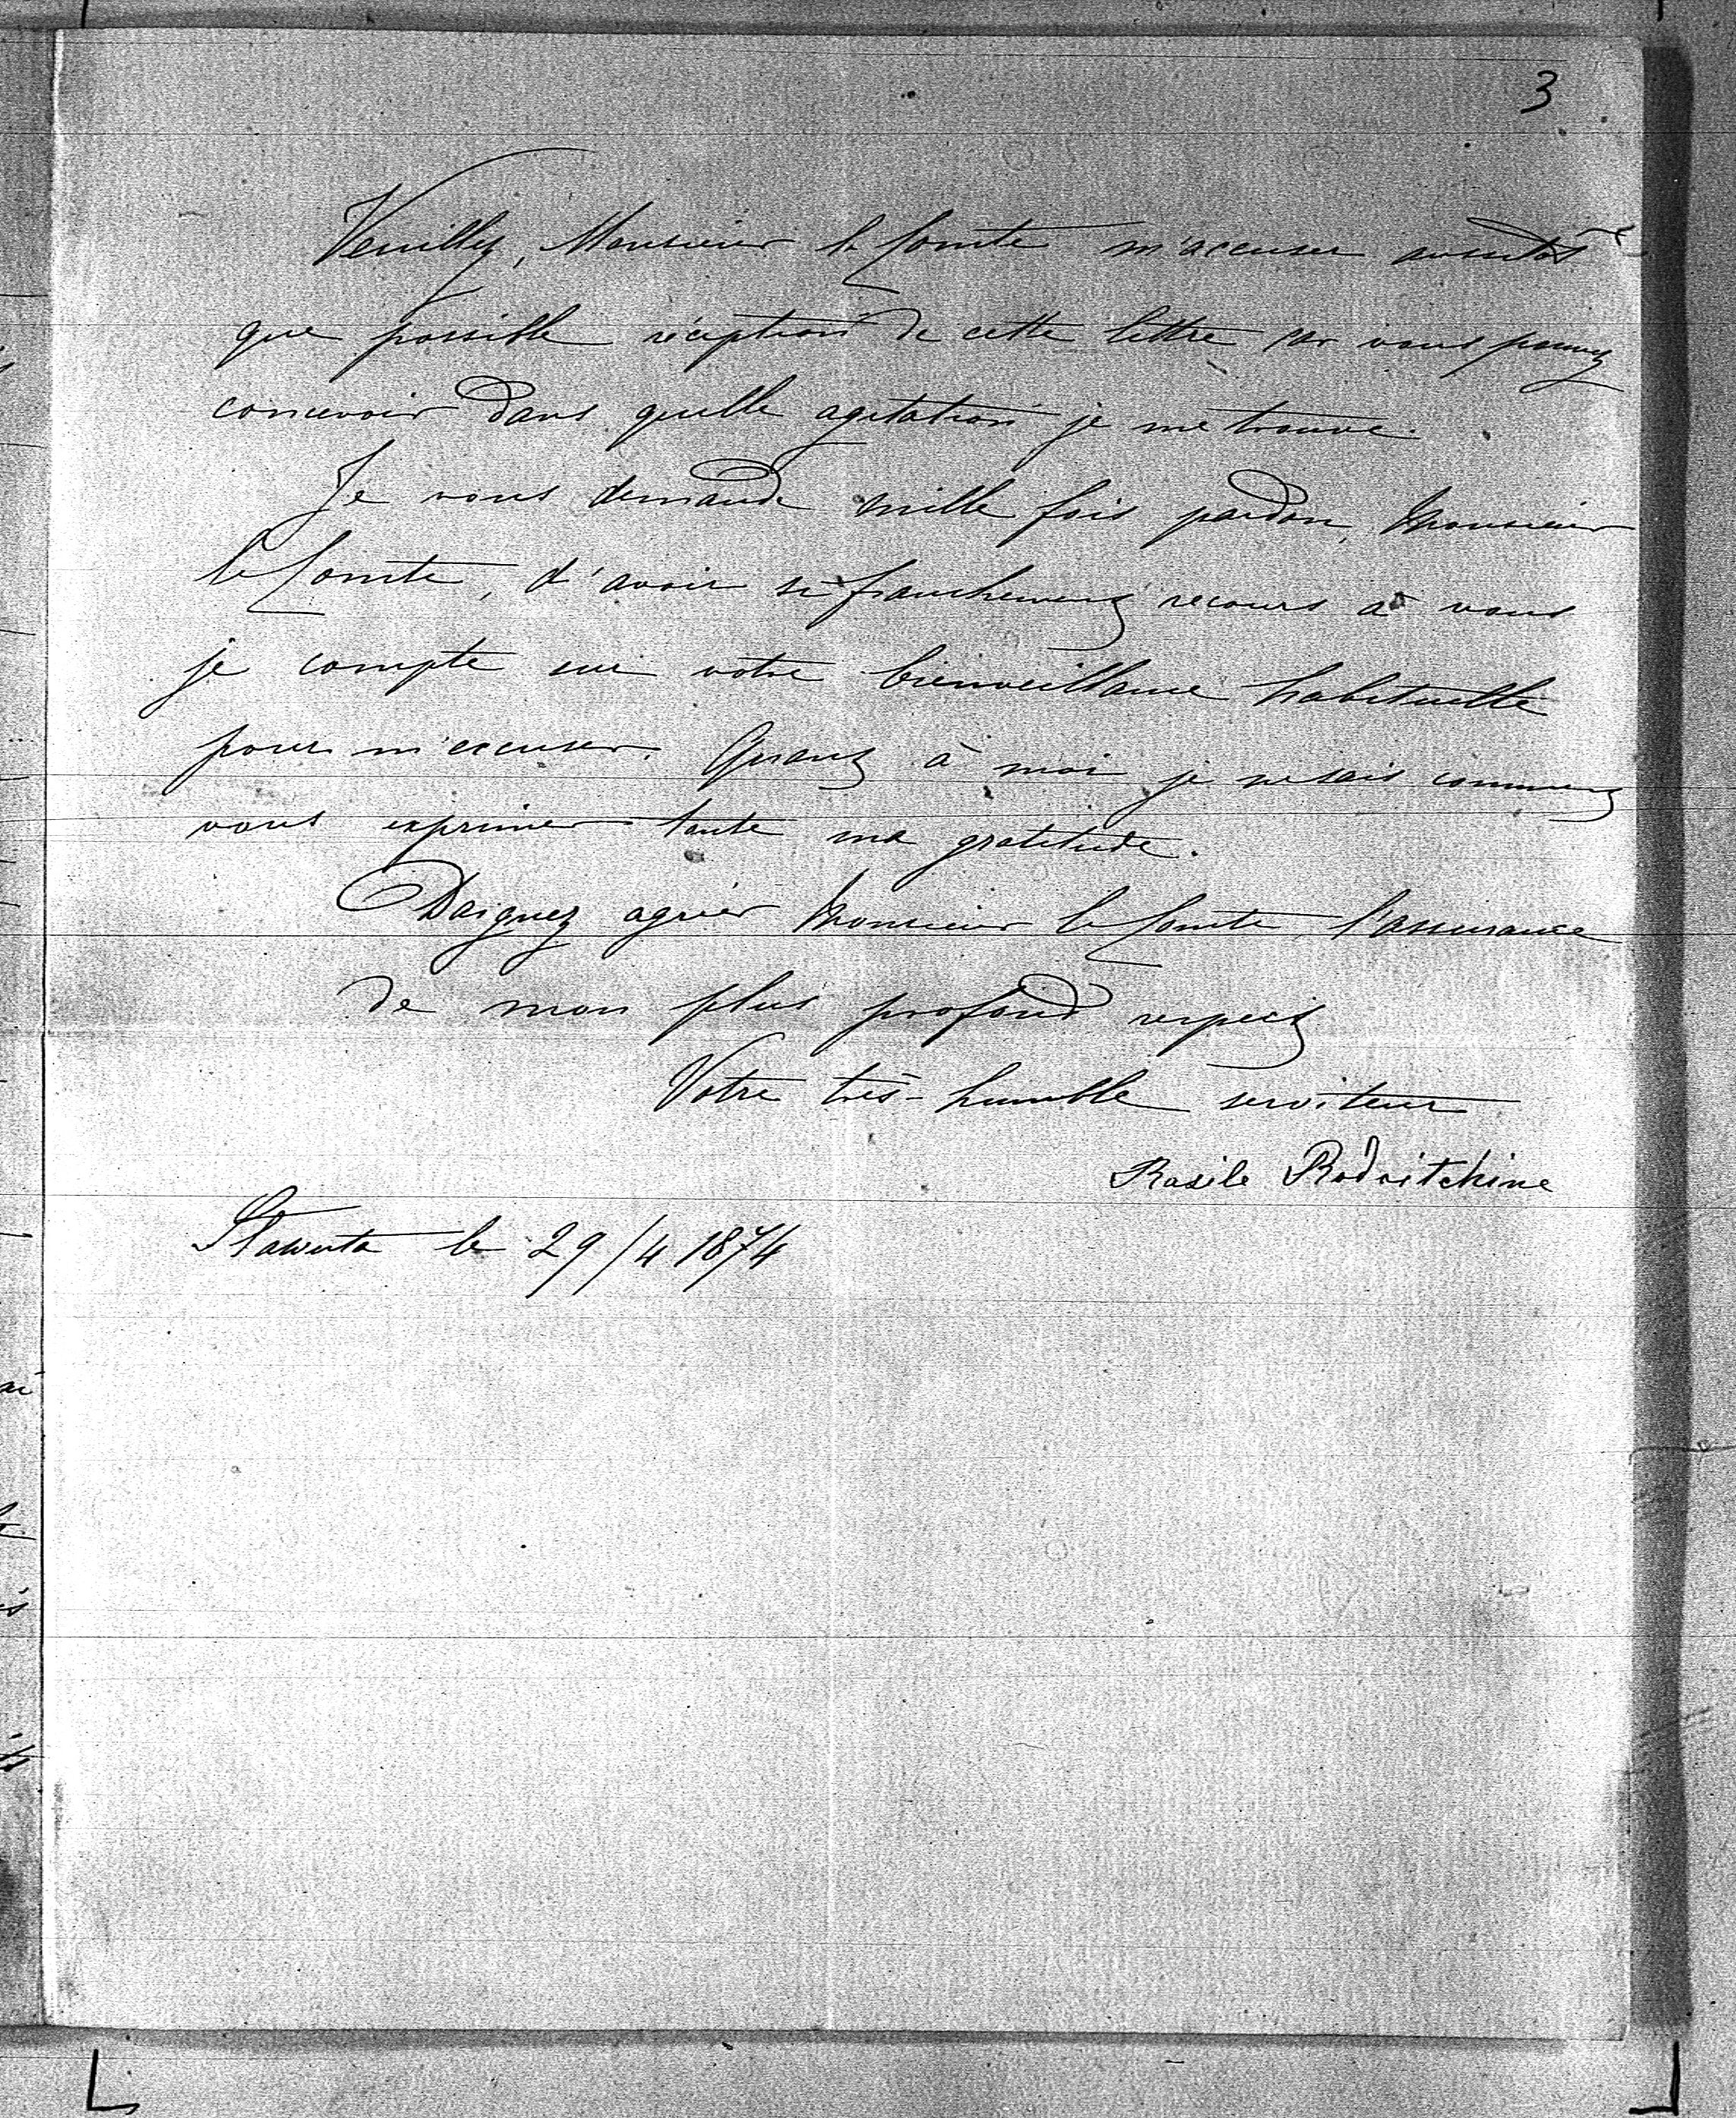 3
Veuillez, Monsieur le Comte m'accuser aussitôt
que possible réception de cette lettre car vous pouvez
concevoir dans quelle agitation je me trouve.
Je vous demande mille fois pardon, Monsieur
le Comte, d'avoir si franchement recours à vous
je compte sur votre bienveillance habituelle
pour m'excuser. Quant à moi je ne sais comment
vous exprimer toute ma gratitude.
Daignez agréer Monsieur le Comte l'assurance
de mon plus profond respect
Votre très-humble serviteur
Basile Rodoitchine
Slawuta le 29/4 1874